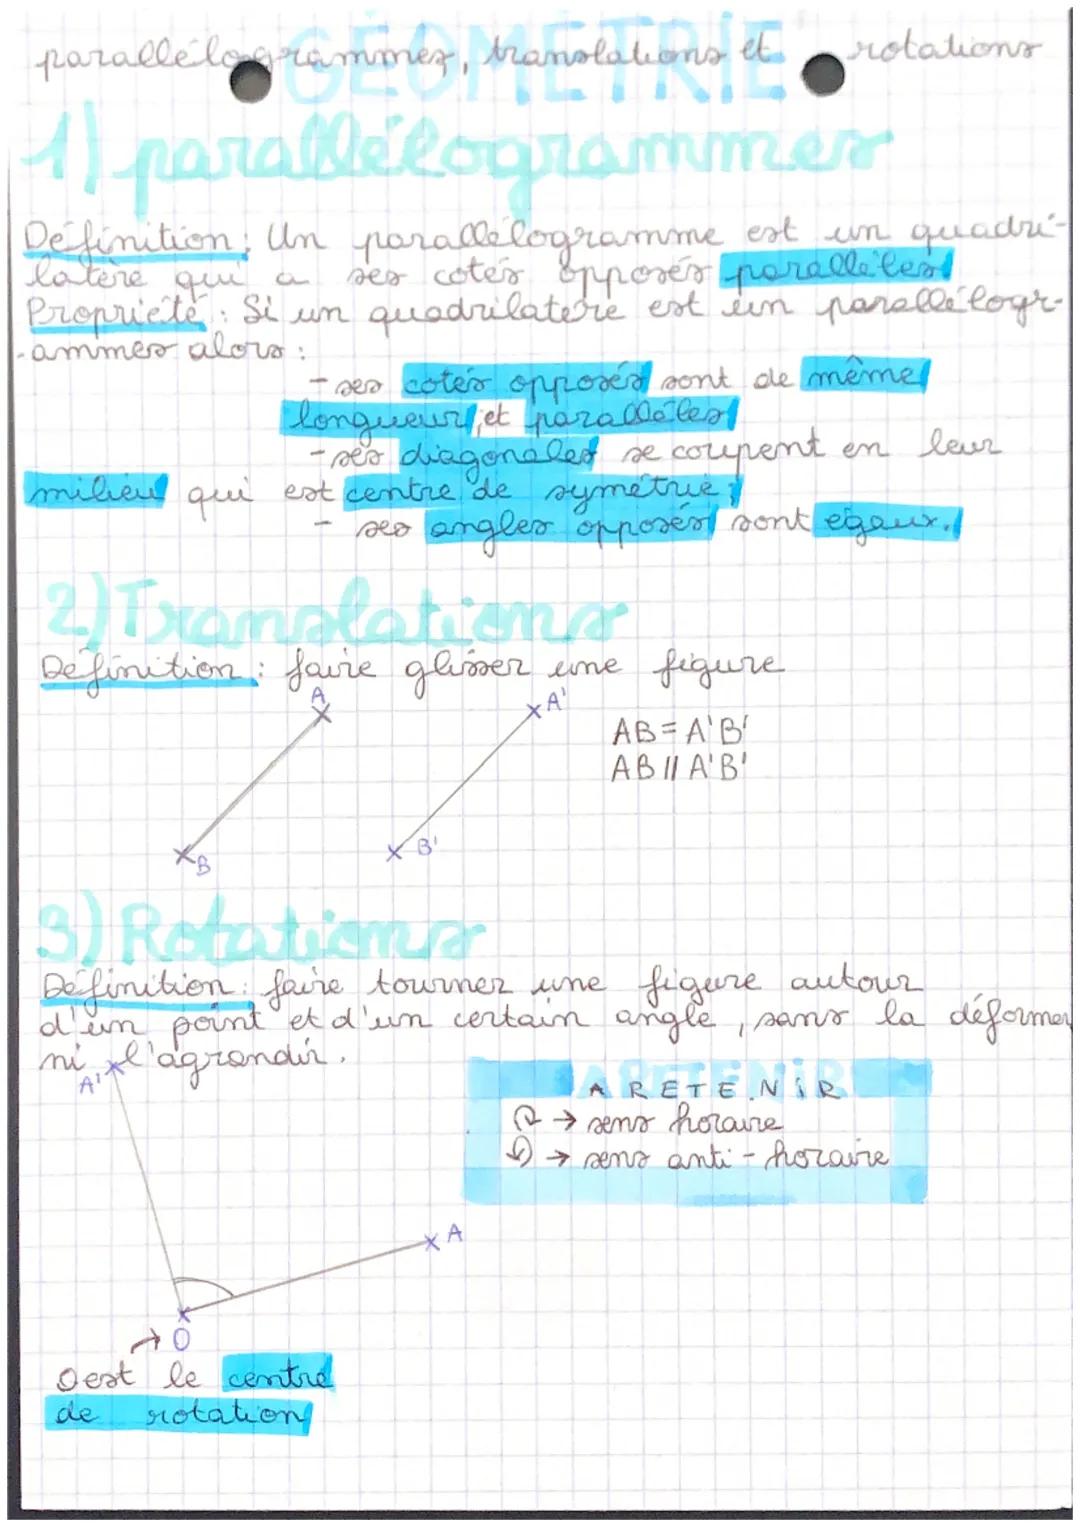 GÉOMÉTRIE
parallélogrammes, translations et rotations
1) parallélogrammes
Définition : Un parallélogramme est un quadri-
latère qui a ses cotés opposés parallèles
Propriété : Si un quadrilatère est un parallélogr-
-ammes alors :
- ses cotés opposés sont de même
longueur, et parallèles
- ses diagonales se coupent en leur
milieu qui est centre de symétrie ;
- ses angles opposés sont égaux.
2) Translations
Définition : faire glisser une figure
A
A'
AB = A'B'
AB // A'B'
B
B'
3) Rotations
Définition : faire tourner une figure autour
d'un point et d'un certain angle, sans la déformer
ni l'agrandir.
A'
A RETENIR
→ sens horaire
→ sens anti-horaire
A
→ O
O est le centre
de rotation